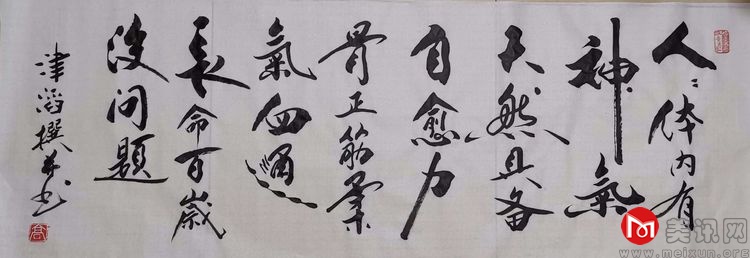 人〻体内有
神氣
天然具备
自愈力
骨正筋柔
氣血通
长命百歲
没问题
津滔撰并书
美讯网
www.meixun.org